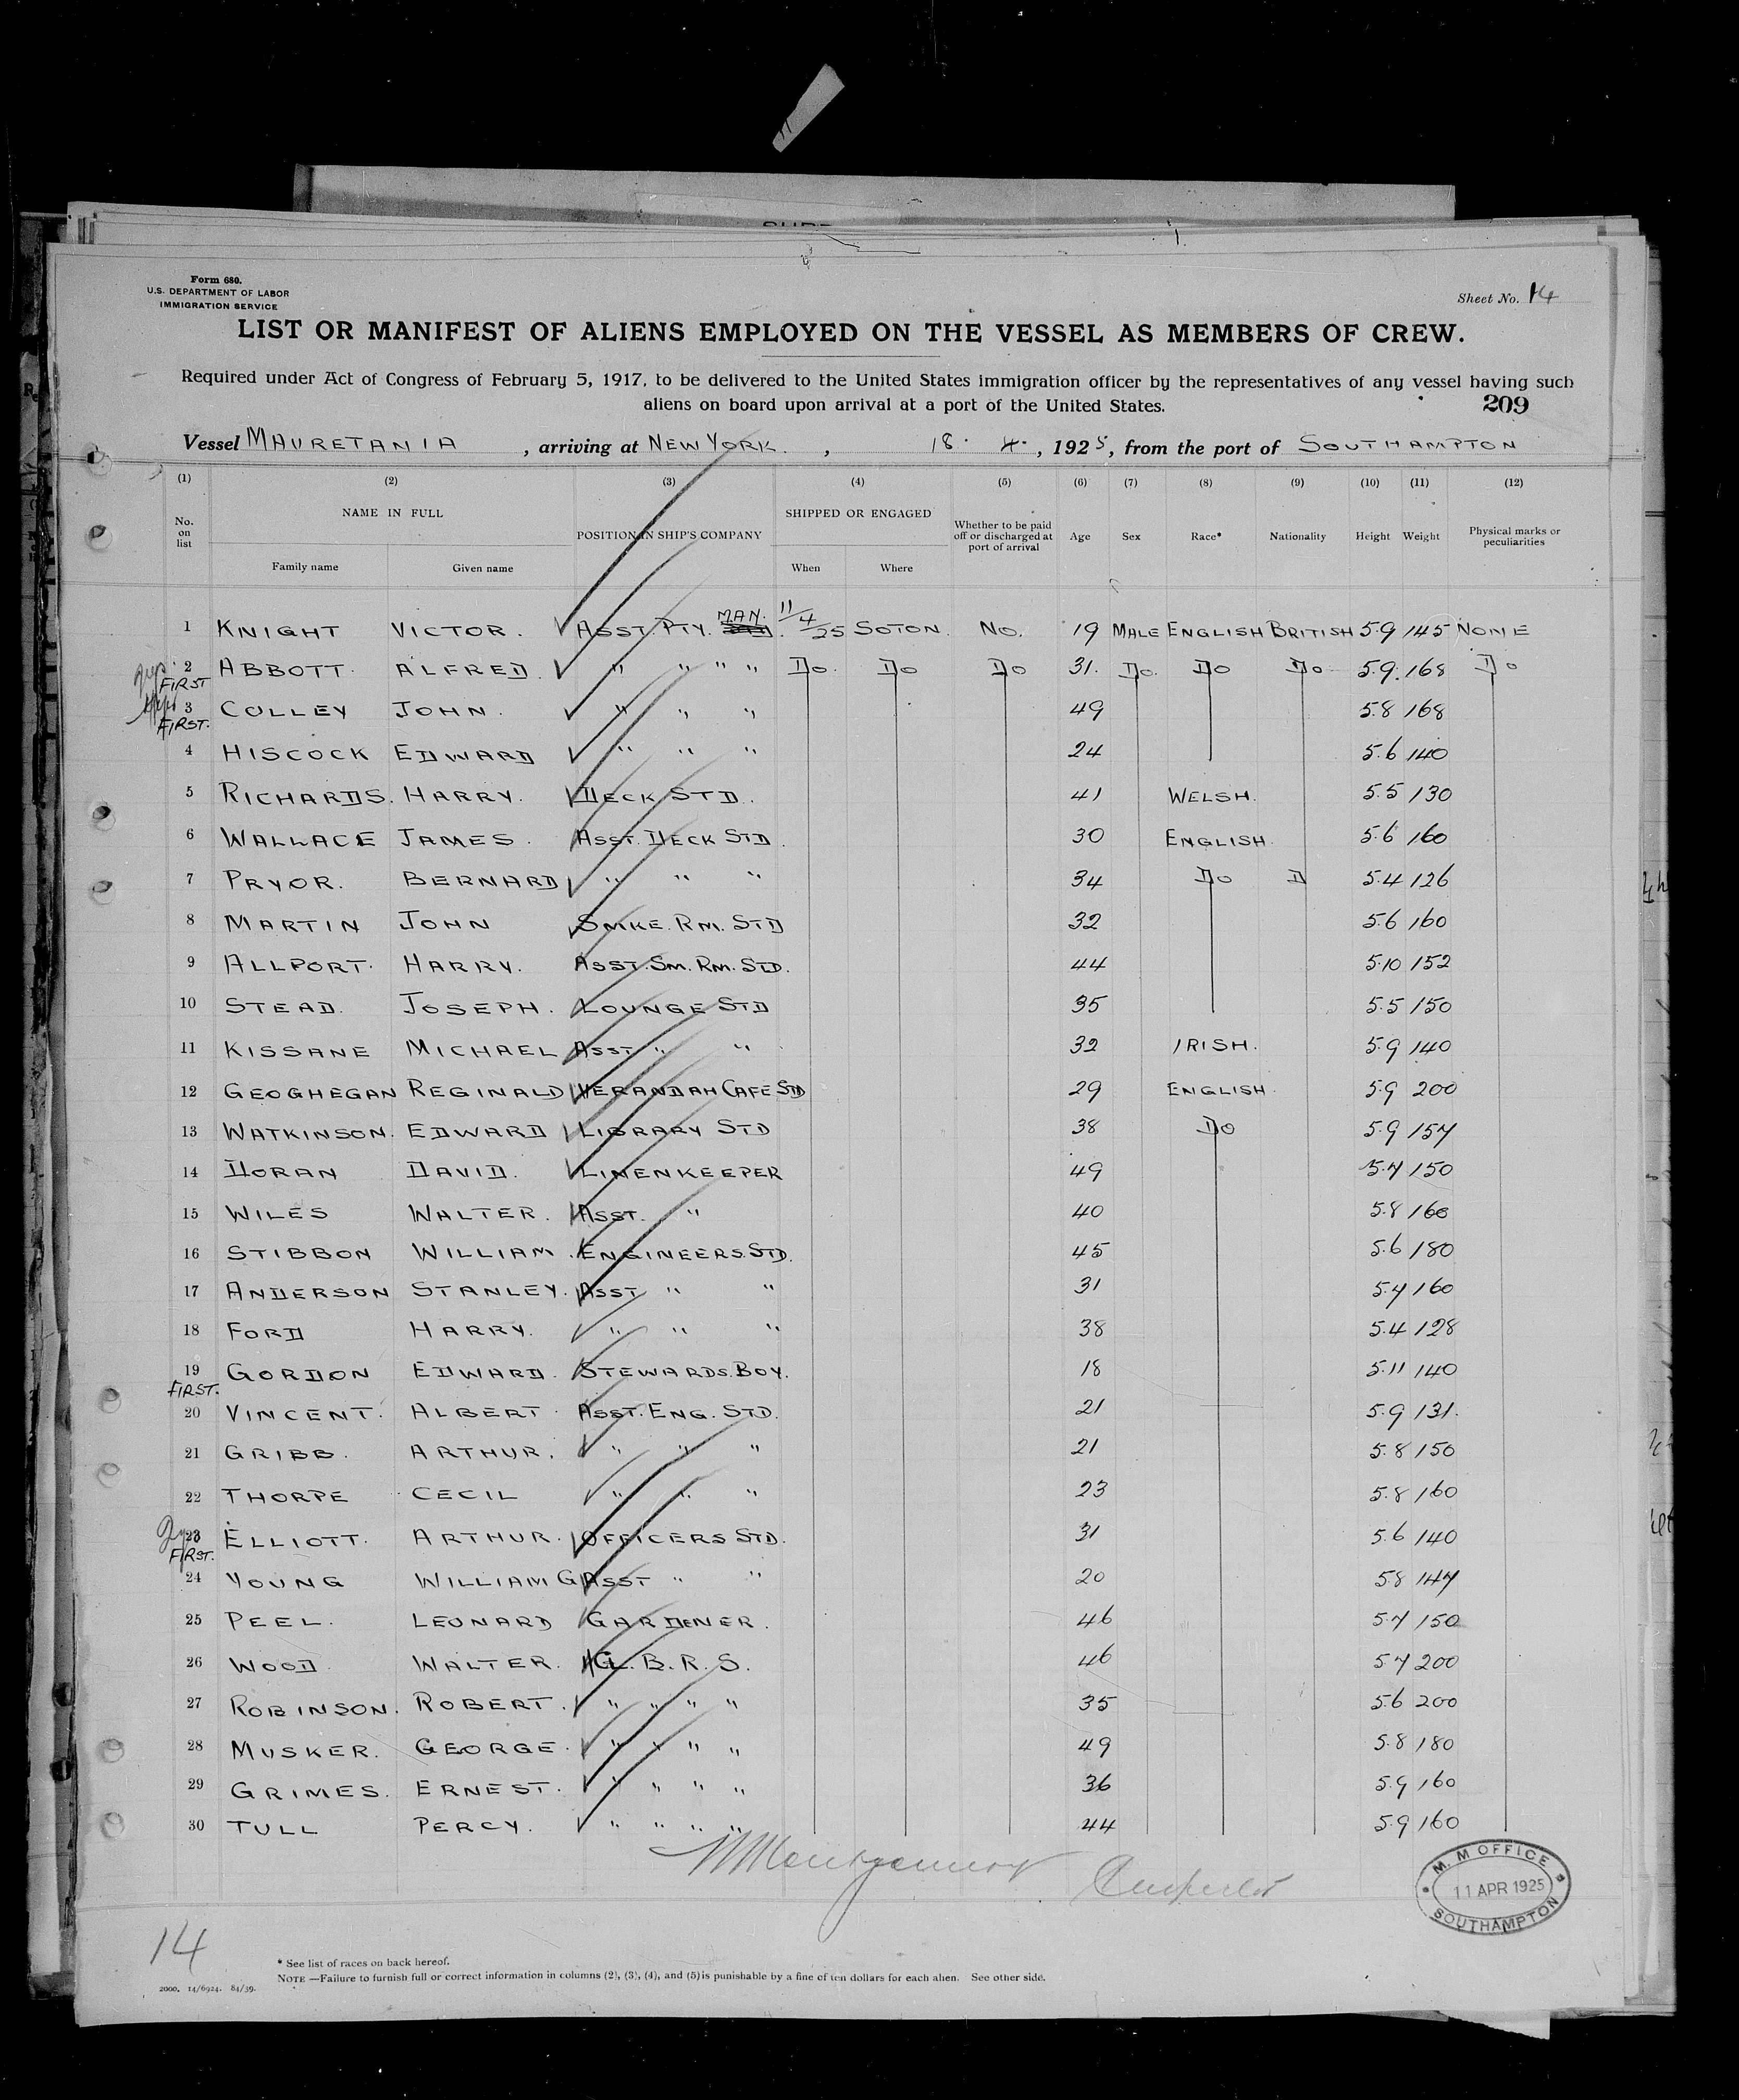 Form 680.
U.S. DEPARTMENT OF LABOR
IMMIGRATION SERVICE
Sheet No. 14
LIST OR MANIFEST OF ALIENS EMPLOYED ON THE VESSEL AS MEMBERS OF CREW.
Required under Act of Congress of February 5, 1917, to be delivered to the United States immigration officer by the representatives of any vessel having such
aliens on board upon arrival at a port of the United States.
209
Vessel MAURETANIA , arriving at NEW YORK. , 18. 4. , 1925, from the port of SOUTHAMPTON
(1) (2) (3) (4) (5) (6) (7) (8) (9) (10) (11) (12)
No. on list NAME IN FULL POSITION IN SHIP'S COMPANY SHIPPED OR ENGAGED Whether to be paid off or discharged at port of arrival Age Sex Race* Nationality Height Weight Physical marks or peculiarities
Family name Given name When Where
1 KNIGHT VICTOR. ASST. PTY. MAN. 11/4/25 SOTON. NO. 19 MALE ENGLISH BRITISH 5.9 145 NONE
2 ABBOTT. ALFRED. " " " " Do. Do Do 31. Do. Do Do 5.9. 168 Do
FIRST
3 COLLEY JOHN. " " " 49 5.8 168
FIRST.
4 HISCOCK EDWARD " " " 24 5.6 140
5 RICHARDS. HARRY. DECK STD. 41 WELSH. 5.5 130
6 WALLACE JAMES. ASST. DECK STD. 30 ENGLISH. 5.6 160
7 PRYOR. BERNARD " " " 34 Do D 5.4 126
8 MARTIN JOHN SMKE. RM. STD 32 5.6 160
9 ALLPORT. HARRY. ASST. SM. RM. STD. 44 5.10 152
10 STEAD. JOSEPH. LOUNGE STD 35 5.5 150
11 KISSANE MICHAEL ASST " " 32 IRISH. 5.9 140
12 GEOGHEGAN REGINALD VERANDAH CAFE STD 29 ENGLISH. 5.9 200
13 WATKINSON. EDWARD LIBRARY STD 38 Do 5.9 157
14 DORAN DAVID. LINENKEEPER 49 5.7 150
15 WILES WALTER. ASST. " 40 5.8 160
16 STIBBON WILLIAM. ENGINEERS. STD. 45 5.6 180
17 ANDERSON STANLEY. ASST " " 31 5.7 160
18 FORD HARRY. " " " 38 5.4 128
19 GORDON EDWARD. STEWARDS. BOY. 18 5.11 140
FIRST.
20 VINCENT. ALBERT. ASST. ENG. STD. 21 5.9 131.
21 GRIBB. ARTHUR. " " " 21 5.8 150
22 THORPE CECIL " " " 23 5.8 160
23 ELLIOTT. ARTHUR. OFFICERS STD. 31 5.6 140
FIRST.
24 YOUNG WILLIAM G ASST " " 20 5.8 147
25 PEEL. LEONARD GARDENER. 46 5.7 150
26 WOOD. WALTER. GL. B. R. S. 46 5 7 200
27 ROBINSON. ROBERT. " " " " 35 5.6 200
28 MUSKER. GEORGE. " " " " 49 5.8 180
29 GRIMES. ERNEST. " " " " 36 5.9 160
30 TULL PERCY. " " " " 44 5.9 160
M. M OFFICE
11 APR 1925
SOUTHAMPTON
14
* See list of races on back hereof.
NOTE —Failure to furnish full or correct information in columns (2), (3), (4), and (5) is punishable by a fine of ten dollars for each alien. See other side.
2000. 14/6924. 84/39.